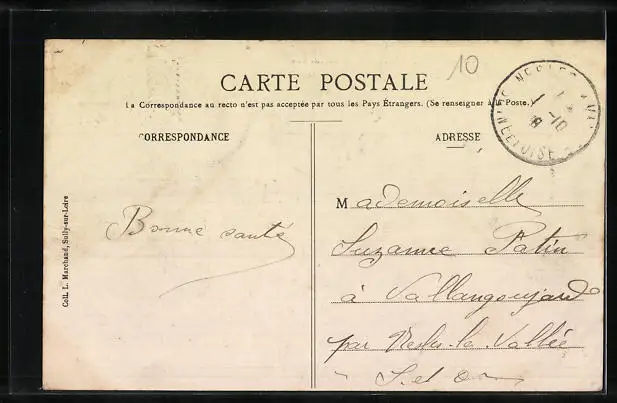 10
CARTE POSTALE
La Correspondance au recto n'est pas acceptée par tous les Pays Étrangers. (Se renseigner à la Poste.)
CORRESPONDANCE
ADRESSE
Bonne santé
Mademoiselle
Suzanne Patin
à Vallangoujard
par Nesles-la-Vallée
S. et O.
Coll. L. Marchand, Sully-sur-Loire